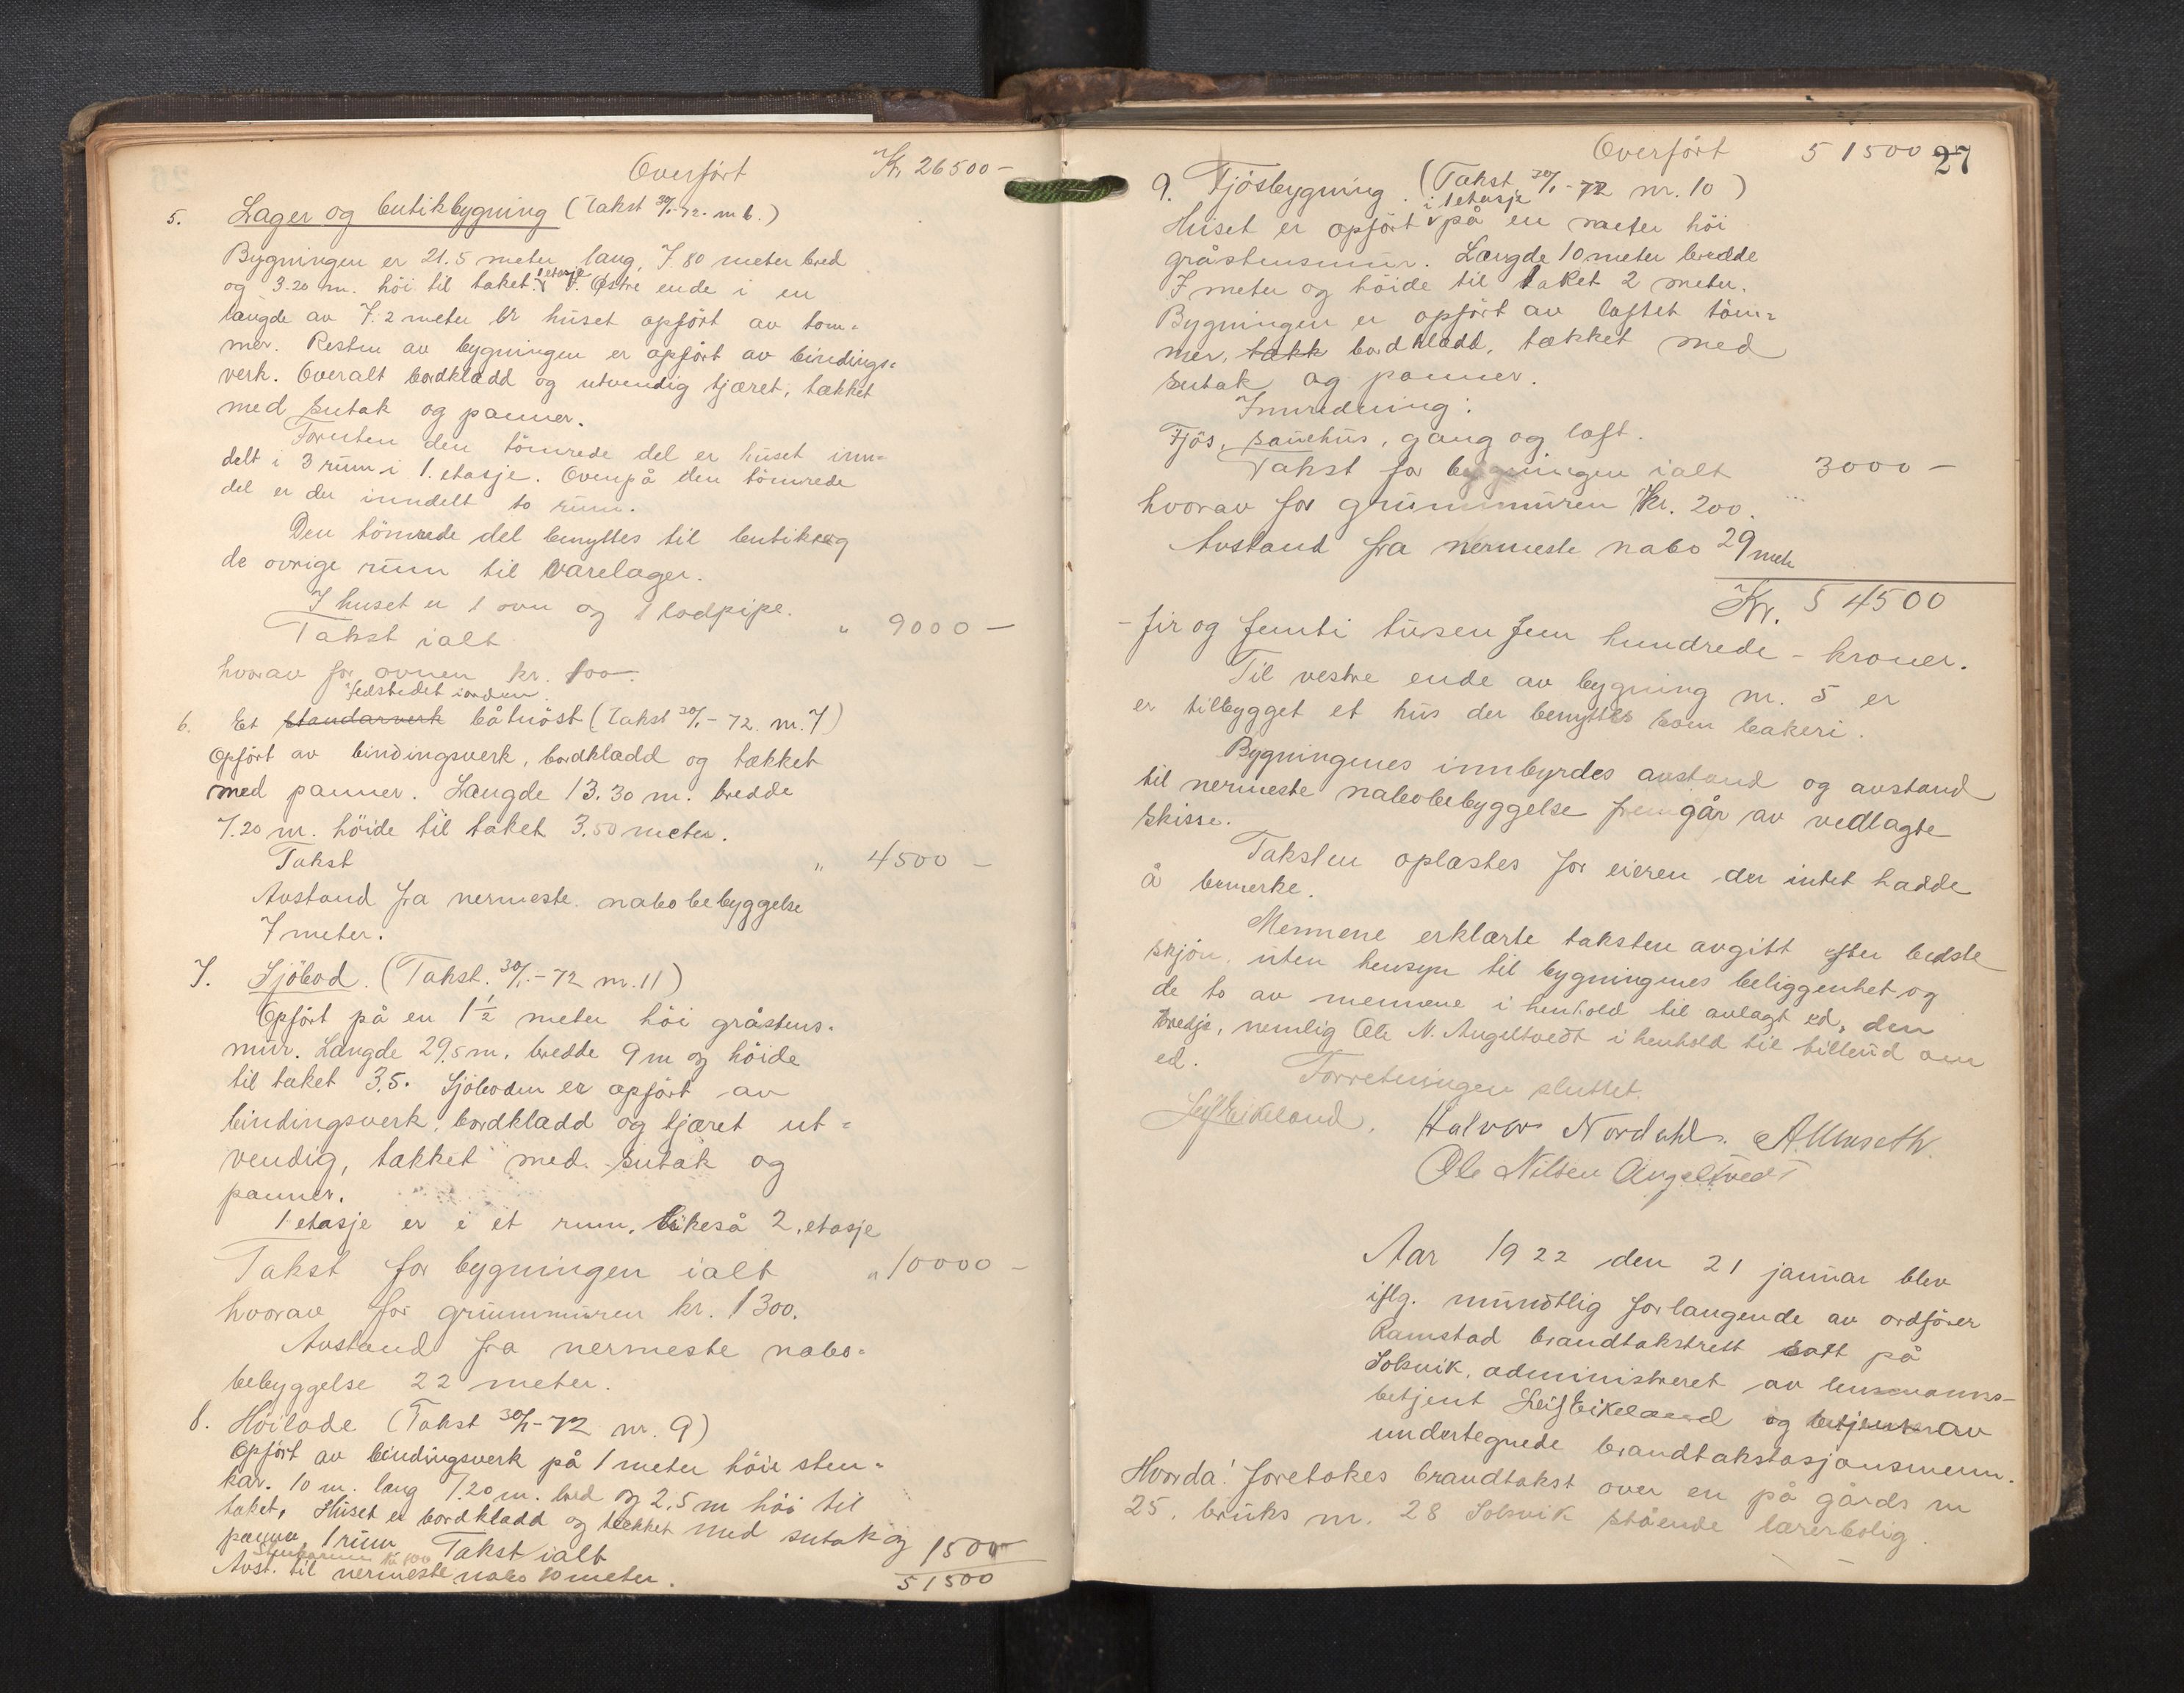 Overfört Kr 26500 –
5. Lager og butikbygning (Takst 30/1-72. nr 6.)
Bygningen er 21.5 meter lang, 7.80 meter bred
og 3.20 m. höi til taket. 1 etasje I Östre ende i en
længde av 7.2 meter er huset opfört av töm-
mer. Resten av bygningen er opfört av bindings-
verk. Overalt bordklædd og utvendig tjæret, tækket
med sutak og panner.
Foruten den tömrede del er huset inn-
delt i 3 rum i 1. etasje. Ovenpå den tömrede
del er der inndelt to rum.
Den tömrede del benyttes til butik og
de övrige rum til varelager.
I huset er 1 ovn og 1 lodpipe.
Takst ialt " 9000 –
hvorav for ovnen kr. 100.
Jedstedet i anden
6. Et standarverk båtnöst (Takst 30/1-72. nr. 7)
Opfört av bindingsverk, bordklædd og tækket
med panner. Længde 13.30 m. bredde
7.20 m. höide til taket 3.50 meter.
Takst " 4500 –
Avstand fra nermeste nabobebyggelse
7 meter.
7. Sjöbod. (Takst. 30/1-72 nr. 11)
Opfört på en 1½ meter höi gråstens-
mur. Længde 29,5 m, bredde 9 m og höide
til taket 3,5. Sjöboden er opfört av
bindingsverk, bordklædd og tjæret ut-
vendig, tækket med sutak og
panner.
1 etasje er i et rum, likeså 2. etasje
Takst for bygningen ialt " 10000 –
hvorav for grunnmuren kr. 1300.
Avstand fra nermeste nabo-
bebyggelse 22 meter.
8. Höilade (Takst 30/1-72 nr. 9)
Opfört av bindingsverk på 1 meter höie sten-
kar. 10 m. lang 7.20 m. bred og 2,5 m höi til
taket. Huset er bordklædd og tækket med sutak og
panner 1 rum Takst ialt 1500
Stenkarene kr 100
Avst. til nermeste nabo 10 meter. 51500
Overfört 51500 27
9. Fjösbygning. (Takst. 30/1-72 nr. 10)
i 1 etasje
Huset er opfört på en meter höi
gråstensmur. Længde 10 meter bredde
7 meter og höide til taket 2 meter.
Bygningen er opfört av laftet töm-
mer, takk bordklædd, tækket med
sutak og panner.
Innredning:
Fjös, sauehus, gang og loft.
Takst for bygningen ialt 3000 –
hvorav for grunnmuren kr. 200.
Avstand fra nermeste nabo 29 mete
Kr. 54500
– fir og femti tusen fem hundrede – kroner.
Til vestre ende av bygning nr. 5 er
er tilbygget et hus der benyttes som bakeri.
Bygningenes innbyrdes avstand og avstand
til nermeste nabobebyggelse fremgår av vedlagte
skisse.
Taksten oplæstes for eieren der intet hadde
å bemerke.
Mennene erklærte taksten avgitt efter bedste
skjön, uten hensyn til bygningenes beliggenhet og
de to av mennene i henhold til avlagt ed, den
tredje, nemlig Ole N. Angeltvedt i henhold til tilbud om
ed. Forretningen sluttet.
Leif Eikeland. Halvor Nordahl. A. Unseth.
Ole Nilsen Angeltvedt
Aar 1922 den 21 januar blev
iflg. mundtlig forlangende av ordförer
Ramstad brandtakstrett satt på
Solsvik, administreret av lensmanns-
betjent Leif Eikeland og betjent av
undertegnede brandtakstasjonsmenn.
Hvorda! foretokes brandtakst over en på gårds nr
25, bruks nr. 28 Solsvik stående lærerbolig.